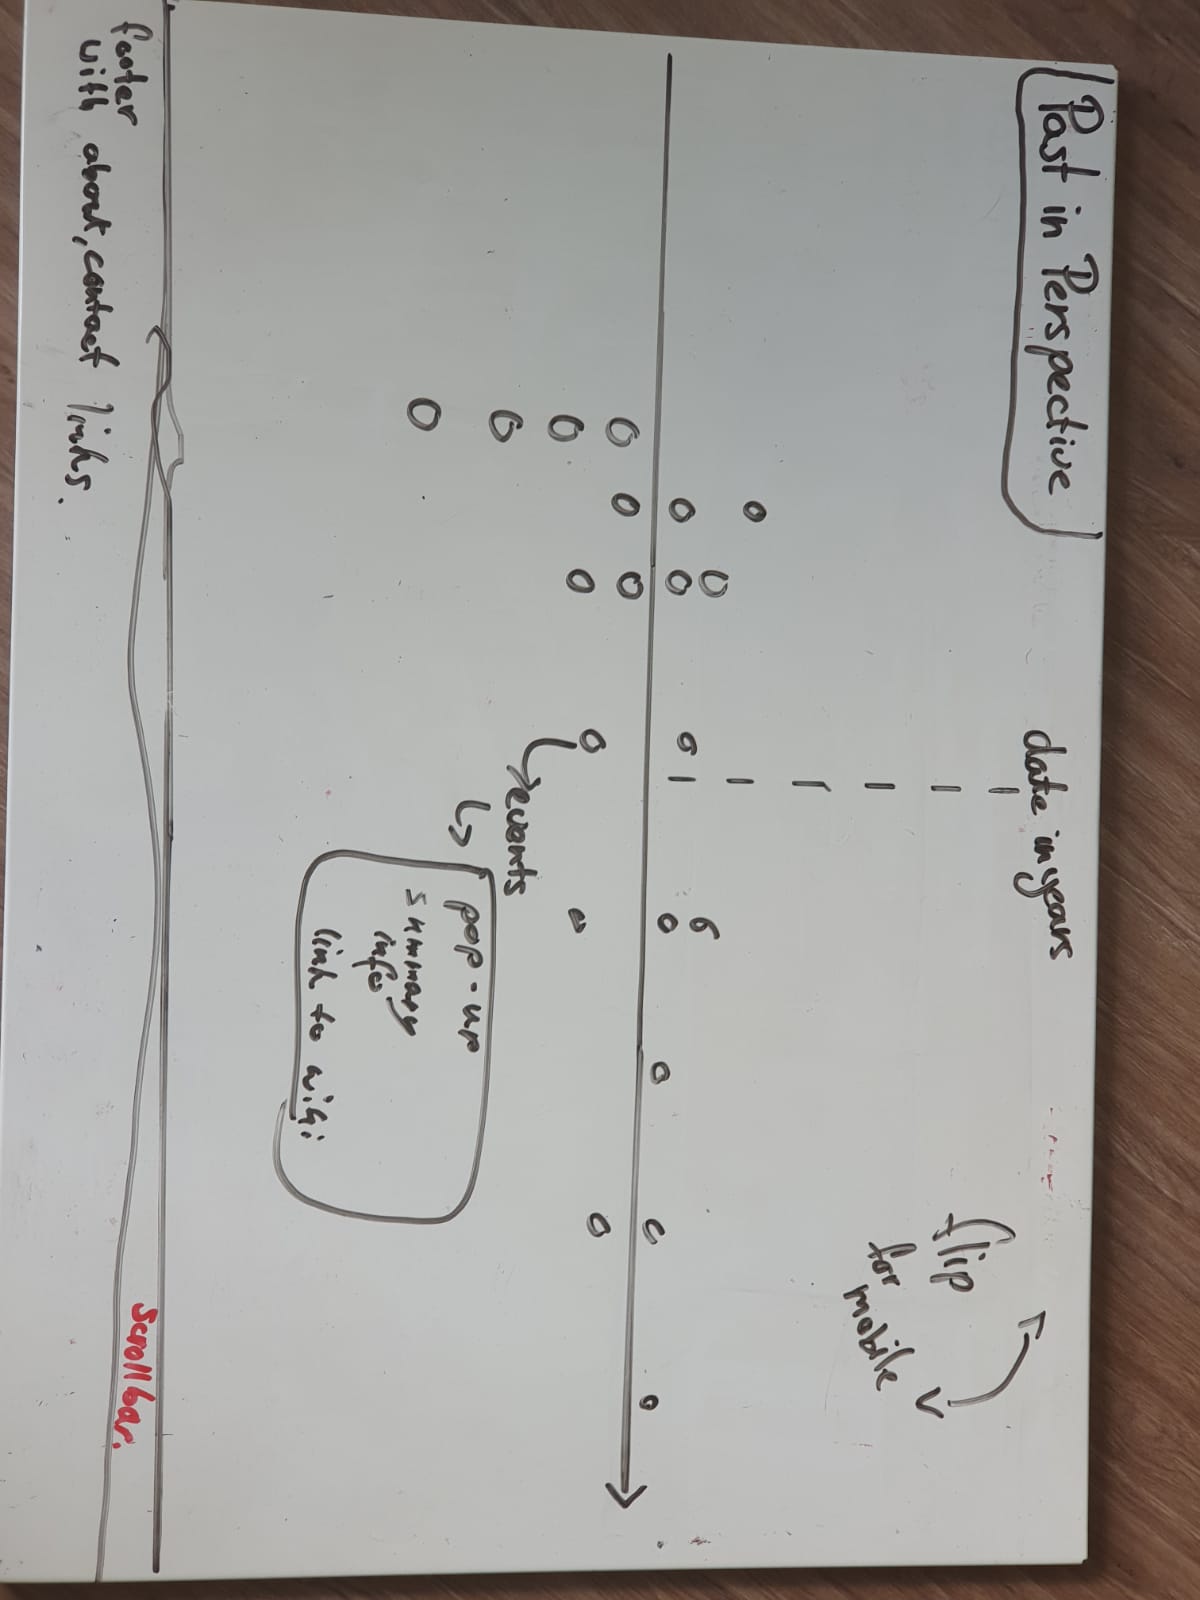 Past in Perspective
date in years
flip
for
mobile
events
pop-up
summary
info
link to wiki
scrollbar.
footer
with about, contact links.